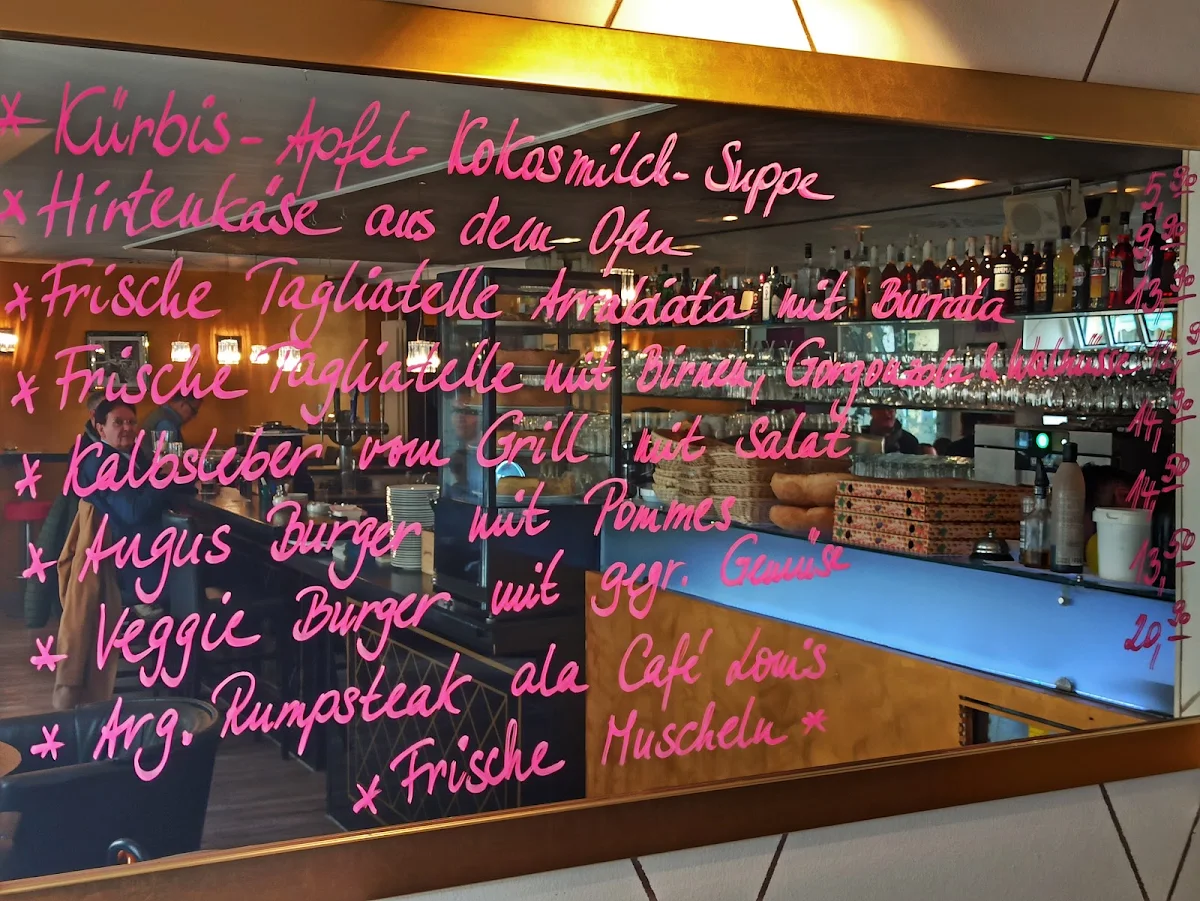 * Kürbis - Apfel - Kokosmilch - Suppe 5,90
* Hirtenkäse aus dem Ofen 9,90
* Frische Tagliatelle Arrabiata mit Burrata 13,90
* Frische Tagliatelle mit Birnen, Gorgonzola & Walnüsse
* Kalbsleber vom Grill mit Salat 14,90
* Angus Burger mit Pommes 14,50
* Veggie Burger mit gegr. Gemüse 13,50
* Arg. Rumpsteak ala Café Louis 20,90
* Frische Muscheln *